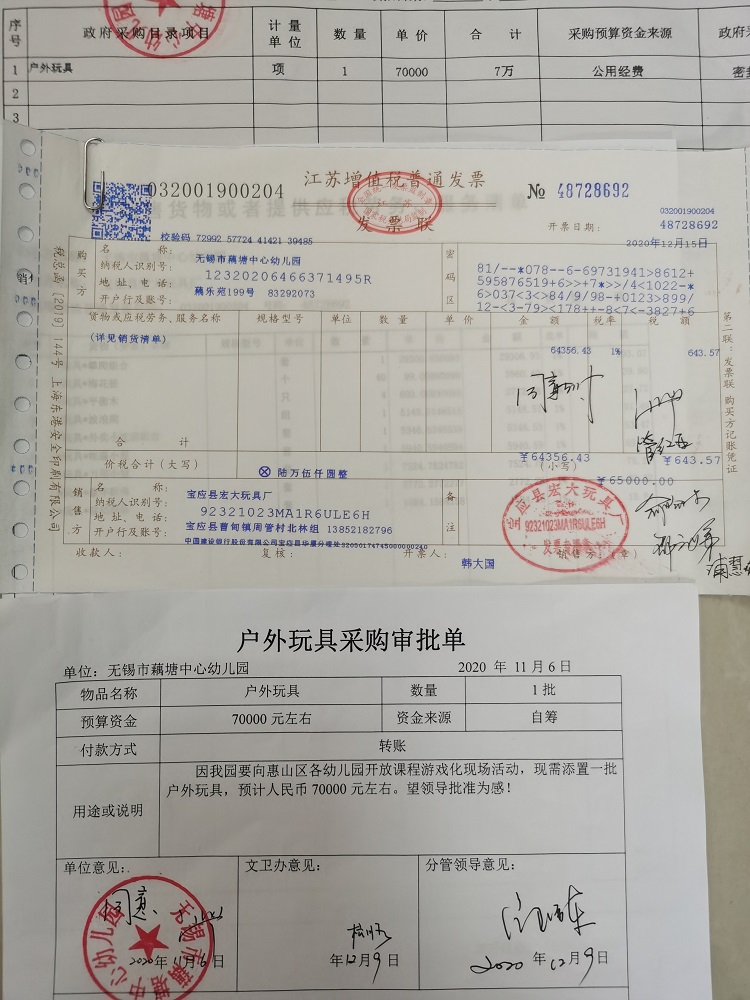 序号 政府采购目录项目 计量单位 数量 单价 合 计 采购预算资金来源 政府采
1 户外玩具 项 1 70000 7万 公用经费
2
3
032001900204 江苏增值税普通发票 № 48728692
发票联
032001900204
48728692
校验码 72992 57724 41421 39485
开票日期: 2020年12月15日
购买方
名 称: 无锡市藕塘中心幼儿园
纳税人识别号: 12320206466371495R
地 址、电 话: 藕乐苑199号 83292073
开户行及账号:
密码区
81/--*078--6-69731941>8612+
595876519+6>>+7*>>/4<1022-*
6>037<3<>84/9/98-+0123>899/
12-<3-79><178++-8<7<-3827+6
货物或应税劳务、服务名称 规格型号 单位 数量 单价 金额 税率 税额
(详见销货清单) 64356.43 1% 643.57
合 计 ¥64356.43 ¥643.57
价税合计(大写) ⊗ 陆万伍仟圆整 (小写) ¥65000.00
销售方
名 称: 宝应县宏大玩具厂
纳税人识别号: 92321023MA1R6ULE6H
地 址、电 话: 宝应县曹甸镇周管村北林组 13852182796
开户行及账号:
备注
收款人: 复核: 开票人: 韩大国 销售方:(章)
宝应县宏大玩具厂
92321023MA1R6ULE6H
发票专用章
税总函[2019]144号 上海东港安全印刷有限公司
第二联:发票联 购买方记账凭证
户外玩具采购审批单
单位: 无锡市藕塘中心幼儿园 2020 年 11月6日
物品名称 户外玩具 数量 1批
预算资金 70000元左右 资金来源 自筹
付款方式 转账
用途或说明
因我园要向惠山区各幼儿园开放课程游戏化现场活动,现需添置一批
户外玩具,预计人民币70000元左右。望领导批准为感!
单位意见: 文卫办意见: 分管领导意见:
无锡市藕塘中心幼儿园
2020年11月6日 年12月9日 2020年12月9日